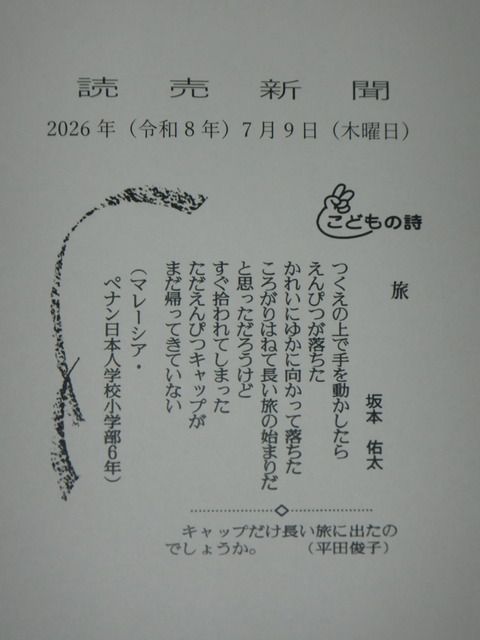 読売新聞
2026年（令和8年）7月9日（木曜日）
こどもの詩
旅
坂本 佑太
つくえの上で手を動かしたら
えんぴつが落ちた
かれいにゆかに向かって落ちた
ころがりはねて長い旅の始まりだ
と思っただろうけど
すぐ拾われてしまった
ただえんぴつキャップが
まだ帰ってきていない
（マレーシア・
ペナン日本人学校小学部6年）
キャップだけ長い旅に出たの
でしょうか。 （平田俊子）